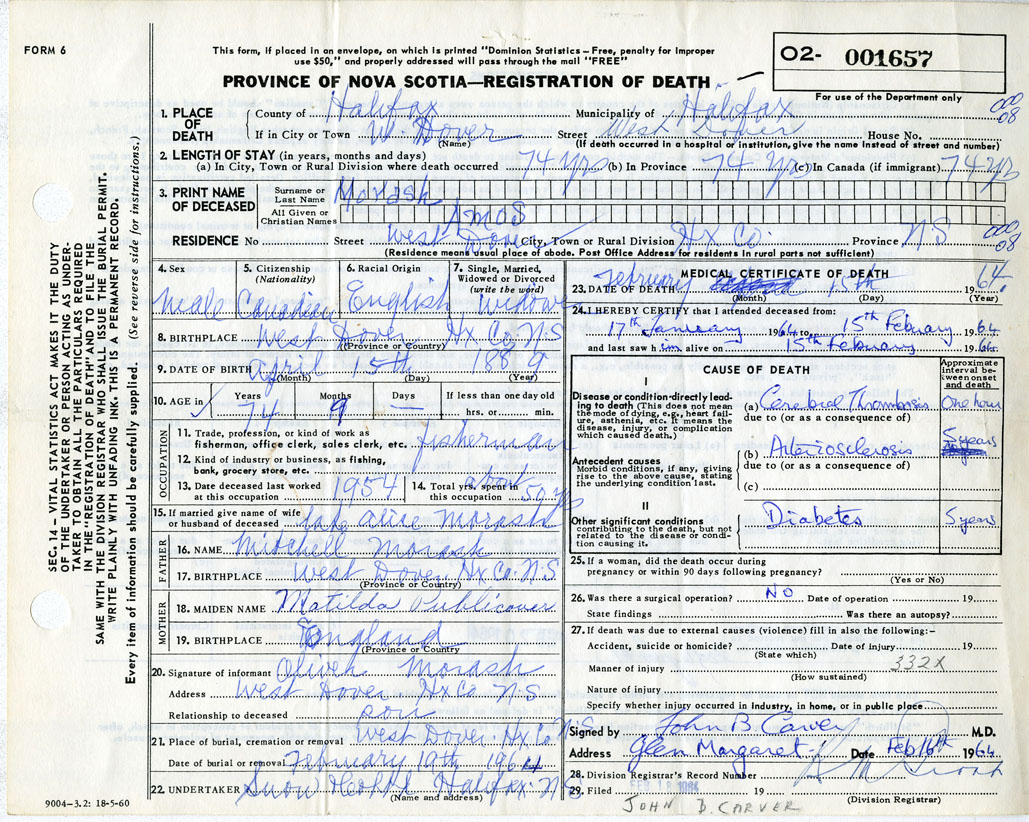 FORM 6
This form, if placed in an envelope, on which is printed "Dominion Statistics – Free, penalty for improper
use $50," and properly addressed will pass through the mail "FREE"
PROVINCE OF NOVA SCOTIA—REGISTRATION OF DEATH
O2- 001657
For use of the Department only
000
08
1. PLACE OF DEATH { County of Halifax Municipality of Halifax
If in City or Town W. Dover (Name) Street West Dover House No.
(If death occurred in a hospital or institution, give the name instead of street and number)
2. LENGTH OF STAY (in years, months and days)
(a) In City, Town or Rural Division where death occurred 74 yrs (b) In Province 74 yrs (c) In Canada (if immigrant) 74 yrs
3. PRINT NAME OF DECEASED { Surname or Last Name Morash
All Given or Christian Names Amos
000
08
RESIDENCE No Street West Dover City, Town or Rural Division Hx Co. Province N S
(Residence means usual place of abode. Post Office Address for residents in rural parts not sufficient)
4. Sex Male
5. Citizenship (Nationality) Canadian
6. Racial Origin English
7. Single, Married, Widowed or Divorced (write the word) Widow
8. BIRTHPLACE West Dover Hx Co N S
(Province or Country)
9. DATE OF BIRTH April 15th 1889
(Month) (Day) (Year)
10. AGE in Years 74 Months 9 Days — If less than one day old hrs. or min.
OCCUPATION
11. Trade, profession, or kind of work as fisherman, office clerk, sales clerk, etc. fisherman
12. Kind of industry or business, as fishing, bank, grocery store, etc.
13. Date deceased last worked at this occupation 1954
14. Total yrs. spent in this occupation about 50 yrs
15. If married give name of wife or husband of deceased late Alice Morash
FATHER
16. NAME Mitchell Morash
17. BIRTHPLACE West Dover Hx Co. N S
(Province or Country)
MOTHER
18. MAIDEN NAME Matilda Publicover
19. BIRTHPLACE England
(Province or Country)
20. Signature of informant Oliver Morash
Address West Dover Hx Co N. S
Relationship to deceased son
21. Place of burial, cremation or removal West Dover. Hx Co N S
Date of burial or removal February 19th 1964
22. UNDERTAKER Snow Halifax N S
(Name and address)
9004–3.2: 18-5-60
SEC. 14 – VITAL STATISTICS ACT MAKES IT THE DUTY
OF THE UNDERTAKER OR PERSON ACTING AS UNDER-
TAKER TO OBTAIN ALL THE PARTICULARS REQUIRED
IN THE "REGISTRATION OF DEATH" AND TO FILE THE
SAME WITH THE DIVISION REGISTRAR WHO SHALL ISSUE THE BURIAL PERMIT.
WRITE PLAINLY WITH UNFADING INK. THIS IS A PERMANENT RECORD.
Every item of information should be carefully supplied. (See reverse side for instructions.)
MEDICAL CERTIFICATE OF DEATH
23. DATE OF DEATH February 15th 64.
(Month) (Day) (Year)
24. I HEREBY CERTIFY that I attended deceased from:
17th January 1964 to 15th Febuary 1964
and last saw him alive on 15th Febuary 1964
CAUSE OF DEATH
Approximate interval between onset and death
I
Disease or condition directly leading to death (This does not mean the mode of dying, e.g., heart failure, asthenia, etc. It means the disease, injury, or complication which caused death.)
(a) Cerebral Thrombosis One hour
due to (or as a consequence of)
Antecedent causes
Morbid conditions, if any, giving rise to the above cause, stating the underlying condition last.
(b) Arteriosclerosis 5 years
due to (or as a consequence of)
(c)
II
Other significant conditions contributing to the death, but not related to the disease or condition causing it.
Diabetes 5 years
25. If a woman, did the death occur during pregnancy or within 90 days following pregnancy?
(Yes or No)
26. Was there a surgical operation? NO Date of operation 19
State findings Was there an autopsy?
27. If death was due to external causes (violence) fill in also the following:–
Accident, suicide or homicide? Date of injury 19
(State which)
332X
Manner of injury
(How sustained)
Nature of injury
Specify whether injury occurred in industry, in home, or in public place
Signed by John B. Carver M.D.
Address Glen Margaret. Date Feb 16th 1964
28. Division Registrar's Record Number
29. Filed FEB 18 1964 19
(Division Registrar)
JOHN B. CARVER